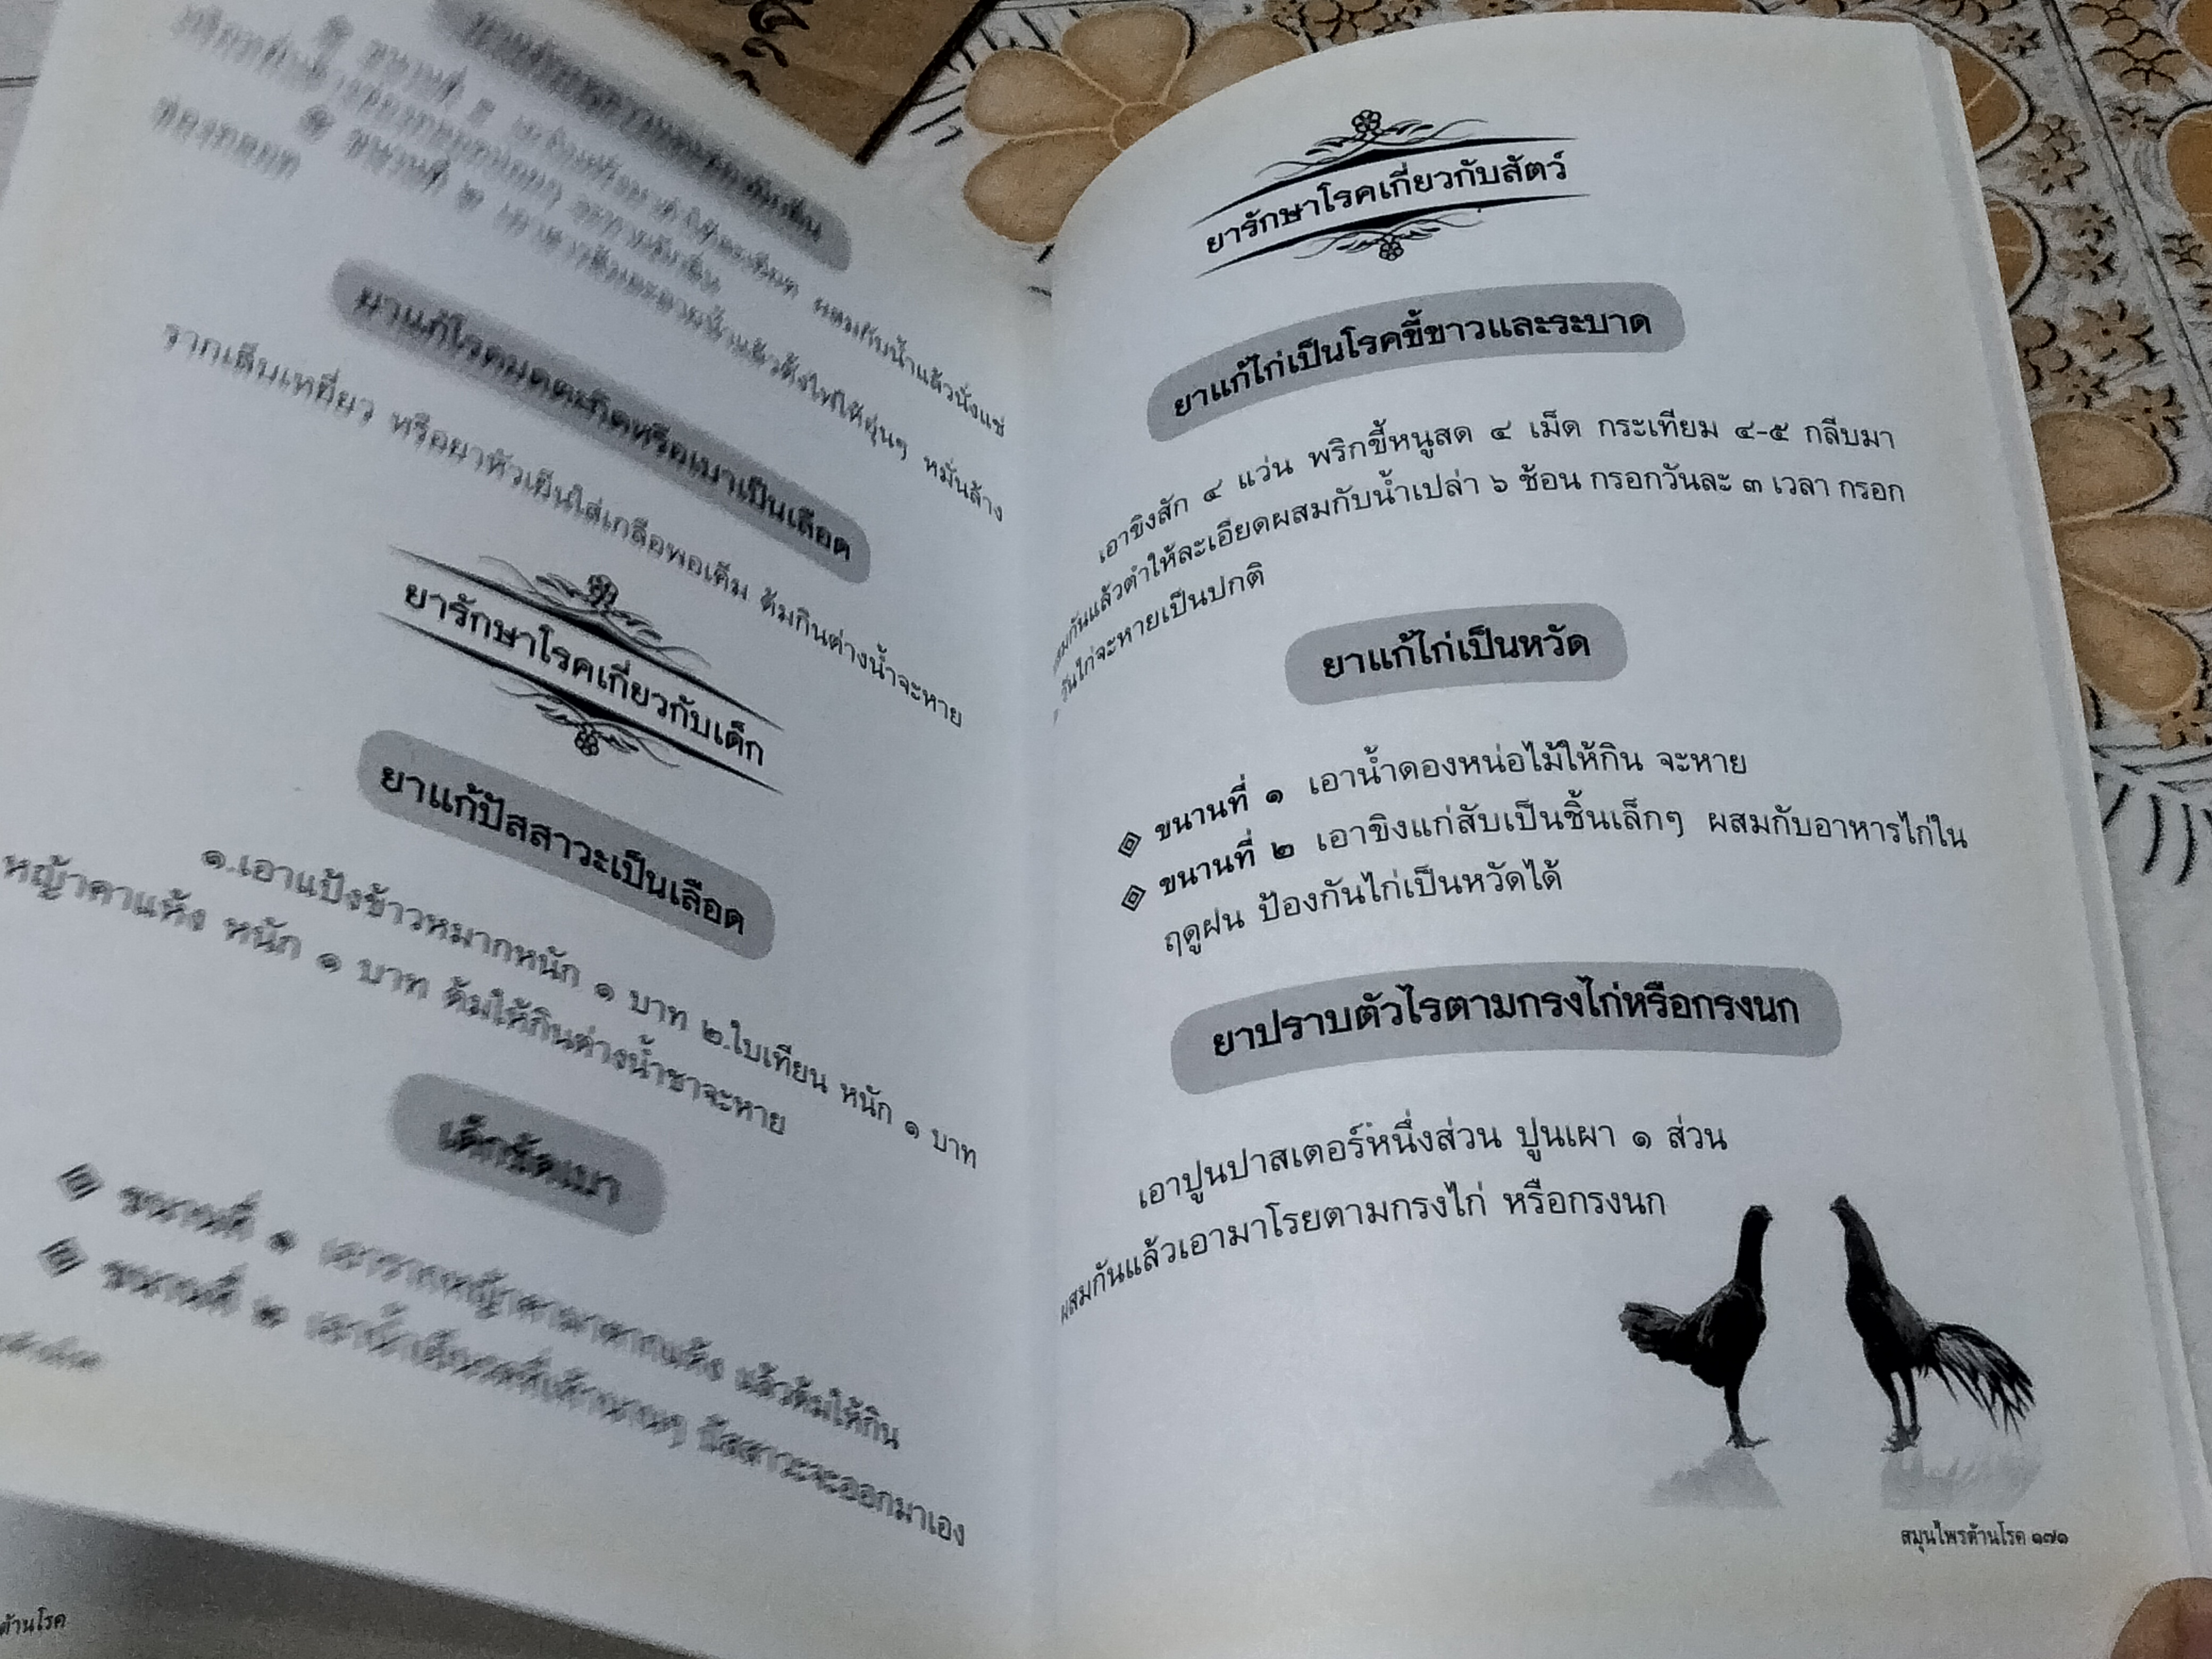 ยาแก้โรคมดตะกิดหรือเบาเป็นเลือด
รากเล็บเหยี่ยว หรือยาหัวเย็นใส่เกลือพอเค็ม ต้มกินต่างน้ำจะหาย
ยารักษาโรคเกี่ยวกับเด็ก
ยาแก้ปัสสาวะเป็นเลือด
๑.เอาแป้งข้าวหมากหนัก ๑ บาท ๒.ใบเทียน หนัก ๑ บาท
หญ้าคาแห้ง หนัก ๑ บาท ต้มให้กินต่างน้ำชาจะหาย
เด็กขัดเบา
ขนานที่ ๑ เอารากหญ้าคามาตากแห้ง แล้วต้มให้กิน
ขนานที่ ๒ ปัสสาวะจะออกมาเอง
ต้านโรค
ยารักษาโรคเกี่ยวกับสัตว์
ยาแก้ไก่เป็นโรคขี้ขาวและระบาด
เอาขิงสัก ๔ แว่น พริกขี้หนูสด ๔ เม็ด กระเทียม ๔-๕ กลีบมา
สมกันแล้วตำให้ละเอียดผสมกับน้ำเปล่า ๖ ช้อน กรอกวันละ ๓ เวลา กรอก
วันไก่จะหายเป็นปกติ
ยาแก้ไก่เป็นหวัด
ขนานที่ ๑ เอาน้ำดองหน่อไม้ให้กิน จะหาย
ขนานที่ ๒ เอาขิงแก่สับเป็นชิ้นเล็กๆ ผสมกับอาหารไก่ใน
ฤดูฝน ป้องกันไก่เป็นหวัดได้
ยาปราบตัวไรตามกรงไก่หรือกรงนก
เอาปูนปาสเตอร์หนึ่งส่วน ปูนเผา ๑ ส่วน
ผสมกันแล้วเอามาโรยตามกรงไก่ หรือกรงนก
สมุนไพรต้านโรค ๑๗๑